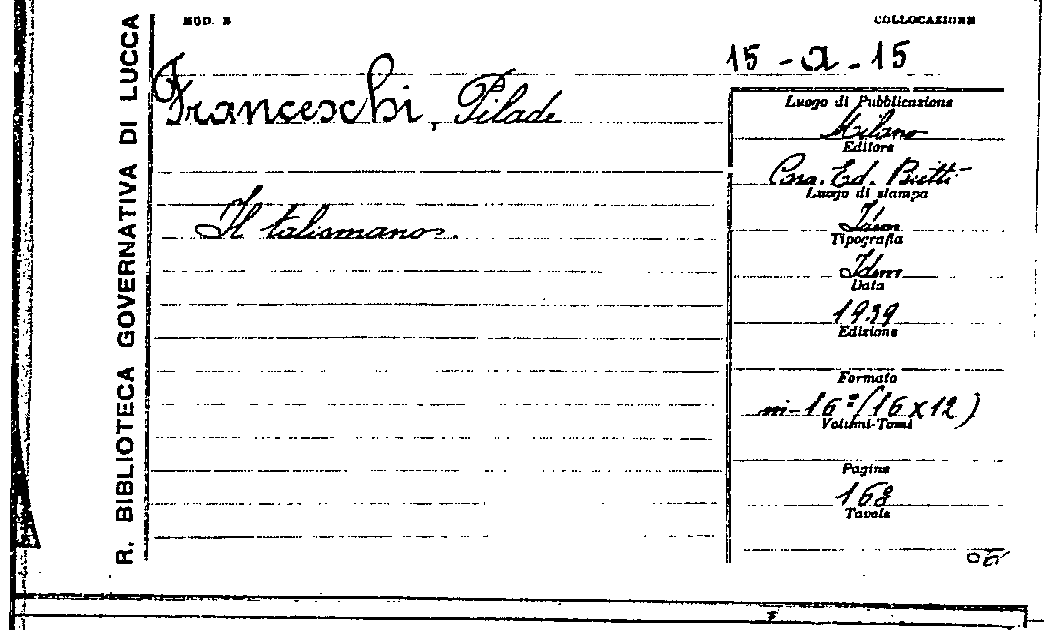 MOD. B
COLLOCAZIONE
R. BIBLIOTECA GOVERNATIVA DI LUCCA
15 - a - 15
Franceschi, Pilade
Il talismano.
Luogo di Pubblicazione
Milano
Editore
Casa. Ed. Bietti
Luogo di stampa
Tipografia
Idem
Data
1939
Edizione
Formato
in-16º (16x12)
Volumi-Tomi
Pagine
168
Tavole